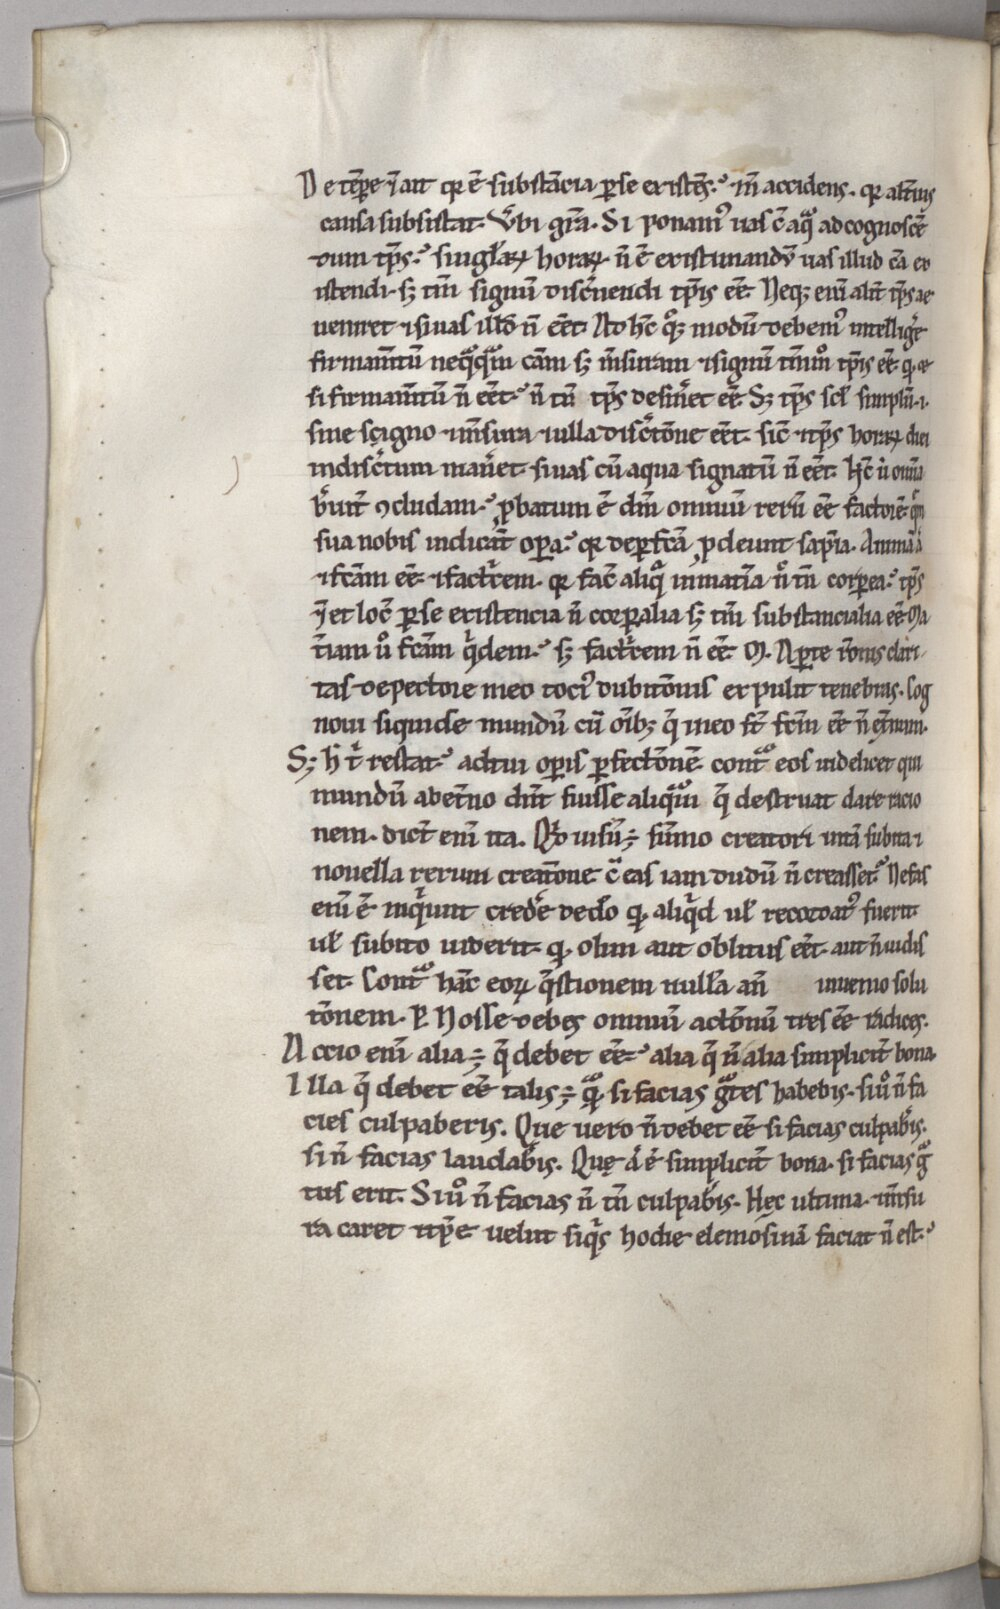 De tēpe ī aīt qr ē substācia p se existēs. īn accidens. qr alt̄ius
causa subsistat. Vbi gr̄a. Si ponam᷒ uas c̄ aq̄ ad cognoscē
dum tp̄s. singlaꝝ horaꝝ n̄ ē existimandū uas illud cā ex
istendi. sꝫ tm̄ signū discernendi tp̄is eē. Neqꝫ enī alit̄ tp̄s ae
ueniret ⁊ si uas illđ n̄ eēt. Ad hc̄ qꝫ modū debem᷒ intelligēe
firmam̄tū neq̄q̄m cām sꝫ m̄suram ⁊ signū tm̄mō tp̄is eē.
si firmam̄tū n̄ eēt. n̄ tn̄ tp̄s desin̄et eē. Sꝫ tp̄s simpln̄ .i.
sine scigno ⁊ m̄sura ⁊ ulla discr̄tōne eēt. sic ⁊ tp̄s horaꝝ diei
indiscr̄tum man̄et. si uas cū aqua signatū n̄ eēt. Hc̄ ū om̄ia
b̄uit̄ ꝯcludam. ꝓbatum ē dm̄ omniū rerū eē factorē. q̄m
sua nobis indicāt opa. qr de pfcā ꝓdeunt sapīa. Animā ū
⁊ fcām eē. ⁊ factr̄cem. qr fac̄ aliq̄ in matīa n̄ tn̄ corpea. tp̄s
ī et loc̄ p se existencia n̄ corpalia sꝫ tm̄ substancialia eē. Ma
t̄iam ū fcām q̄dem. sꝫ factr̄cem n̄ eē. M. Apte rōnis clari
tas de pectore meo toci᷒ dubitōnis expulit tenebras. Cog
noui siquide mundū cū oībꝫ q̄ in eo st̄ fcm̄ eē n̄ et̄num.
Sꝫ h̄ t̄ restat. actiui opis pfectōnē cont̄ eos uidelicet qui
mundū ab et̄no dn̄t fuisse aliq̄m q̄ destruat dare racio
nem. dict̄ enī ita. Qō uisū ÷ sūmo creatori intā subita ⁊
nouella rerum creatōne c̄ eas iam dudū n̄ creasset. Nefas
enī ē inq̄unt credēe de do q̄. aliq̄d ul recordat᷒ fuerit
ul subito uiderit. q̄. olim aut oblitus eēt. aut n̄ uidis
set. Cont̄ hāc eoꝝ q̄stionem nullā an̄ inuenio solu
tōnem. P. Nosse debes omniū actōnū tres eē radices.
Accio enī alia ÷ q̄ debet eē. alia q̄ n̄ alia simplicit̄ bona.
Illa q̄ debet eē talis ÷ q̄. si facias gr̄tes habebis. si ū n̄ fa
cies culpaberis. Que uero n̄ debet eē si facias culpabīs.
si n̄ facias laudabīs. Quę ā ē simplicit̄ bona. si facias gr̄
tus erit. Si ū n̄ facias n̄ tn̄ culpabīs. Hęc ultima. m̄su
ra caret ⁊ tp̄e uelut siq̄s hodie elemosinā faciat n̄ est.